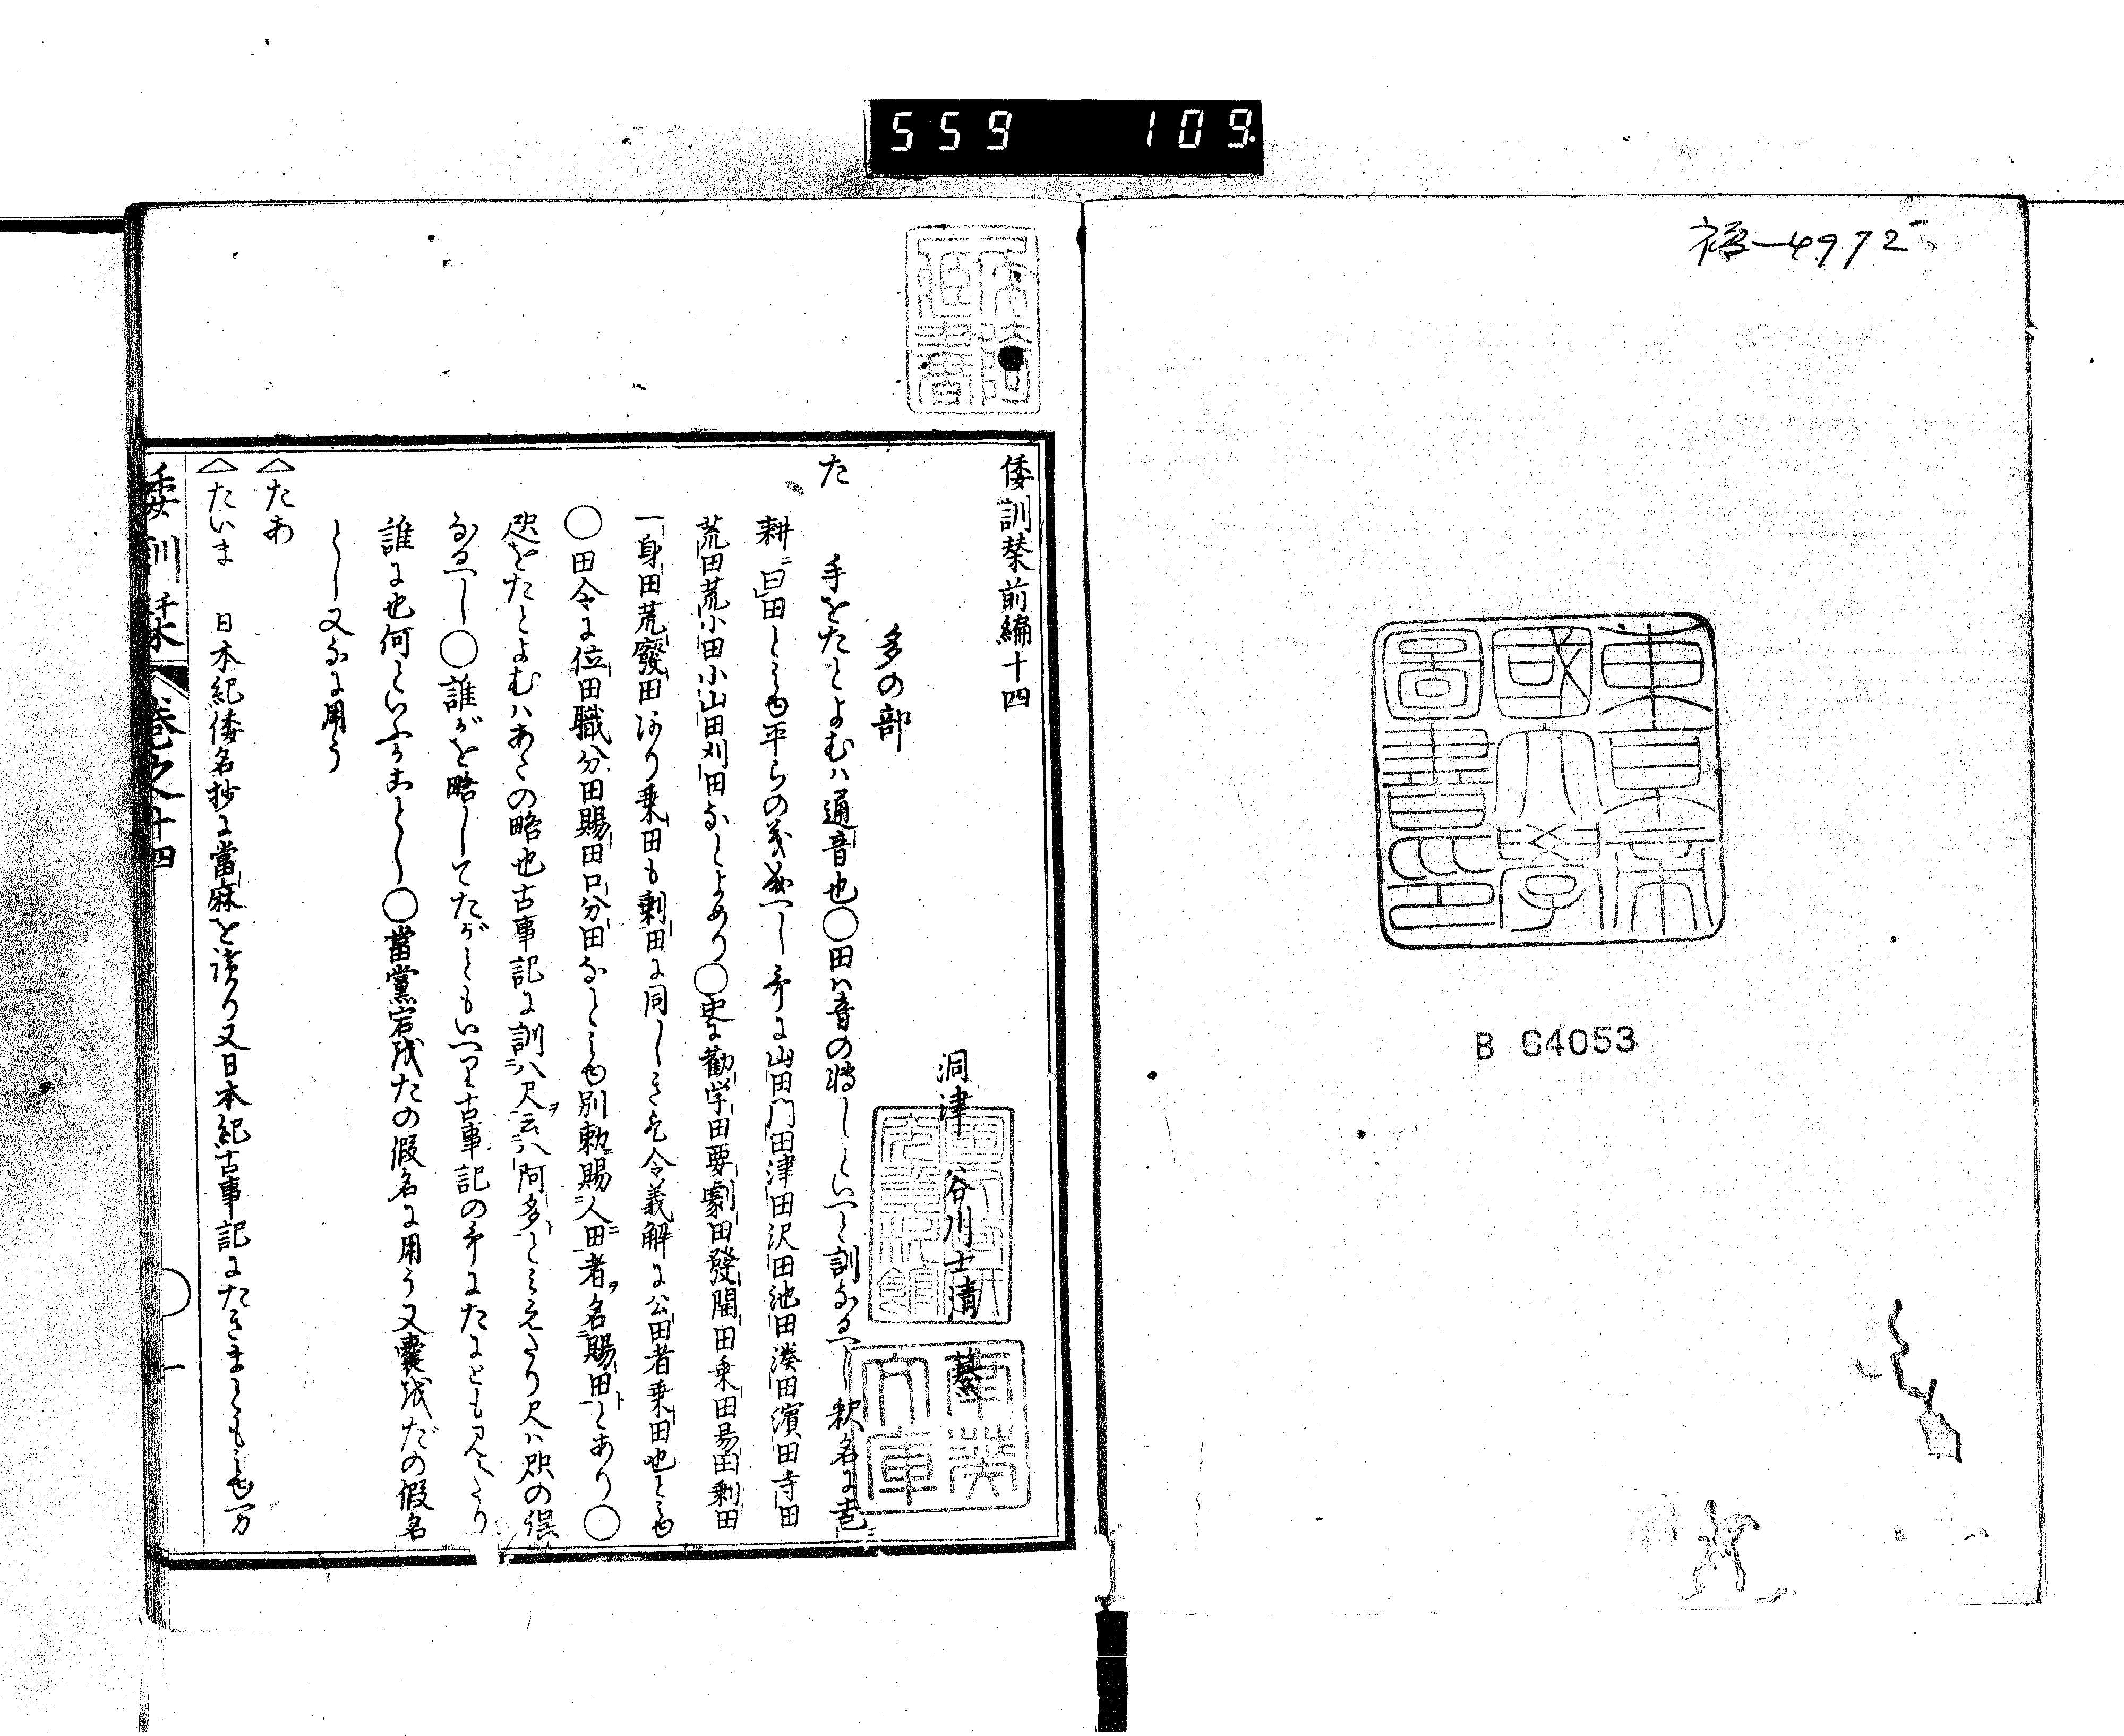 559 109.
福-4972
東京帝
國大學
圖書印
B 64053
倭訓栞前編十四
洞津 谷川士清 纂
南葵
文庫
多の部
た 手をたとよむハ通音也◯田ハ音の轉しといへと訓なるへし釈名に壱
耕曰田とみゆ平らの義なへし歌に山田門田津田沢田池田湊田濱田寺田
荒田荒小田小山田刈田なとよめり◯史に勸学田要劇田發開田乗田易田剰田
一身田荒廢田あり乗田も剰田に同しきを令義解に公田者乗田也とみゆ
◯田令に位田職分田賜田口分田なとみゆ別勅賜人田者名賜田とあり◯
咫をたとよむハあたの略也古事記に訓八尺云八阿多とみえたり尺ハ咫の誤
なるへし◯誰がを略してたがともいへり古事記の歌にたにとも見えたり
誰に也何といふかことし◯當黨宕ハたの假名に用う又嚢ハだの假名
とし又なに用う
△たあ
△たいま 日本紀倭名抄に當麻を讀り又日本紀古事記にたきまともみゆ万
倭訓栞 巻之十四 ◯一